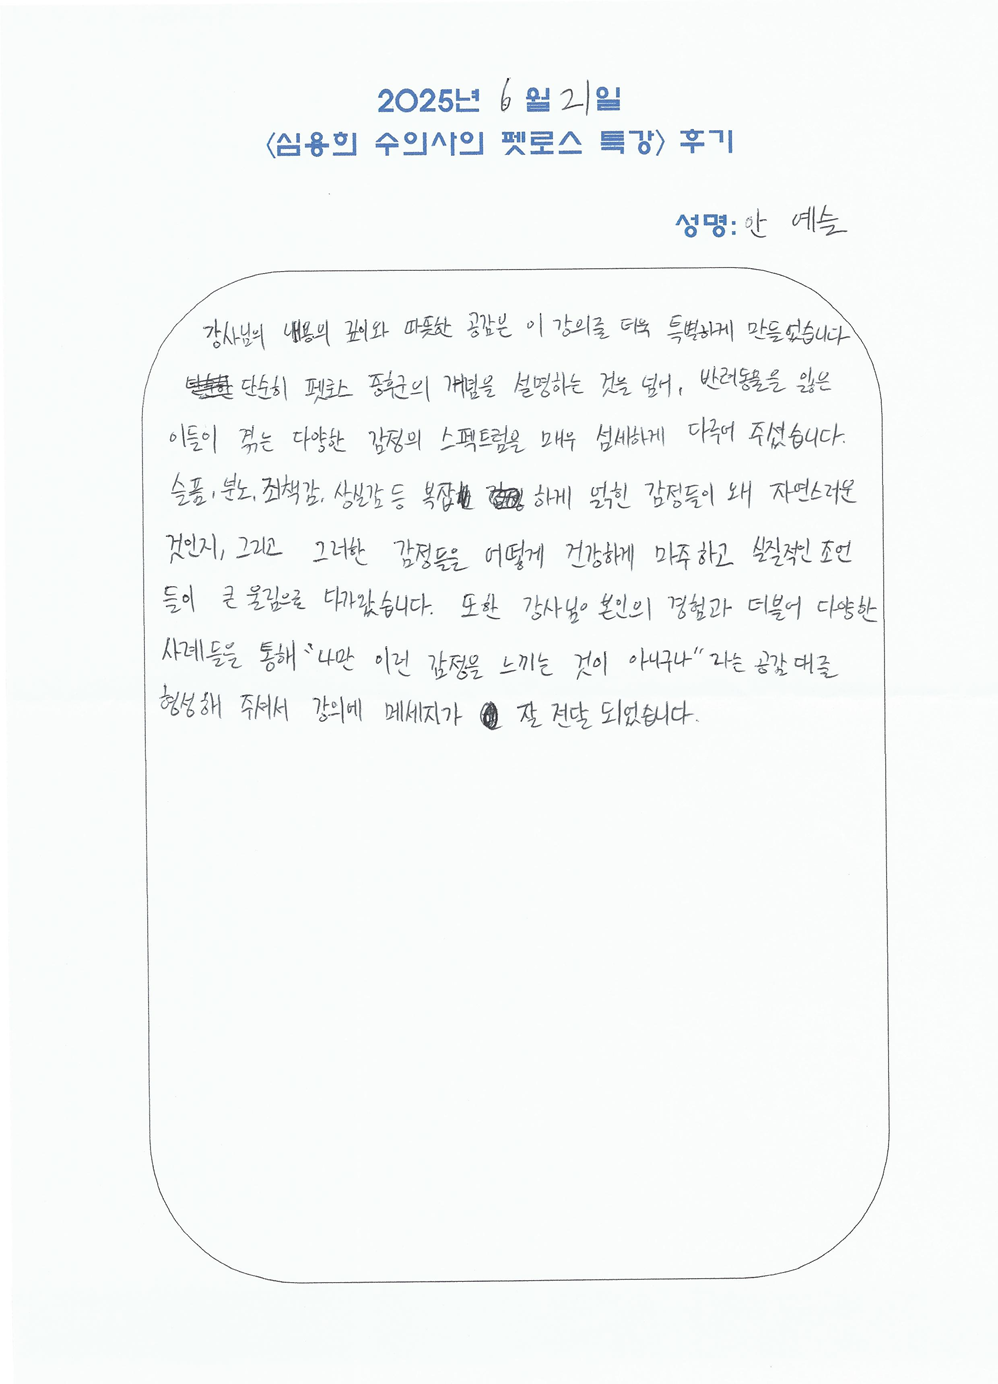 2025년 6월 21일
<심용희 수의사의 펫로스 특강> 후기
성명: 안 예슬
강사님의 내용의 깊이와 따뜻한 공감은 이 강의를 더욱 특별하게 만들었습니다
단순히 펫로스 증후군의 개념을 설명하는 것을 넘어, 반려동물을 잃은
이들이 겪는 다양한 감정의 스펙트럼을 매우 섬세하게 다루어 주셨습니다.
슬픔, 분노, 죄책감, 상실감 등 복잡 하게 얽힌 감정들이 왜 자연스러운
것인지, 그리고 그러한 감정들을 어떻게 건강하게 마주하고 실질적인 조언
들이 큰 울림으로 다가왔습니다. 또한 강사님이 본인의 경험과 더불어 다양한
사례들을 통해 "나만 이런 감정을 느끼는 것이 아니구나" 라는 공감대를
형성해 주셔서 강의에 메세지가 잘 전달 되었습니다.